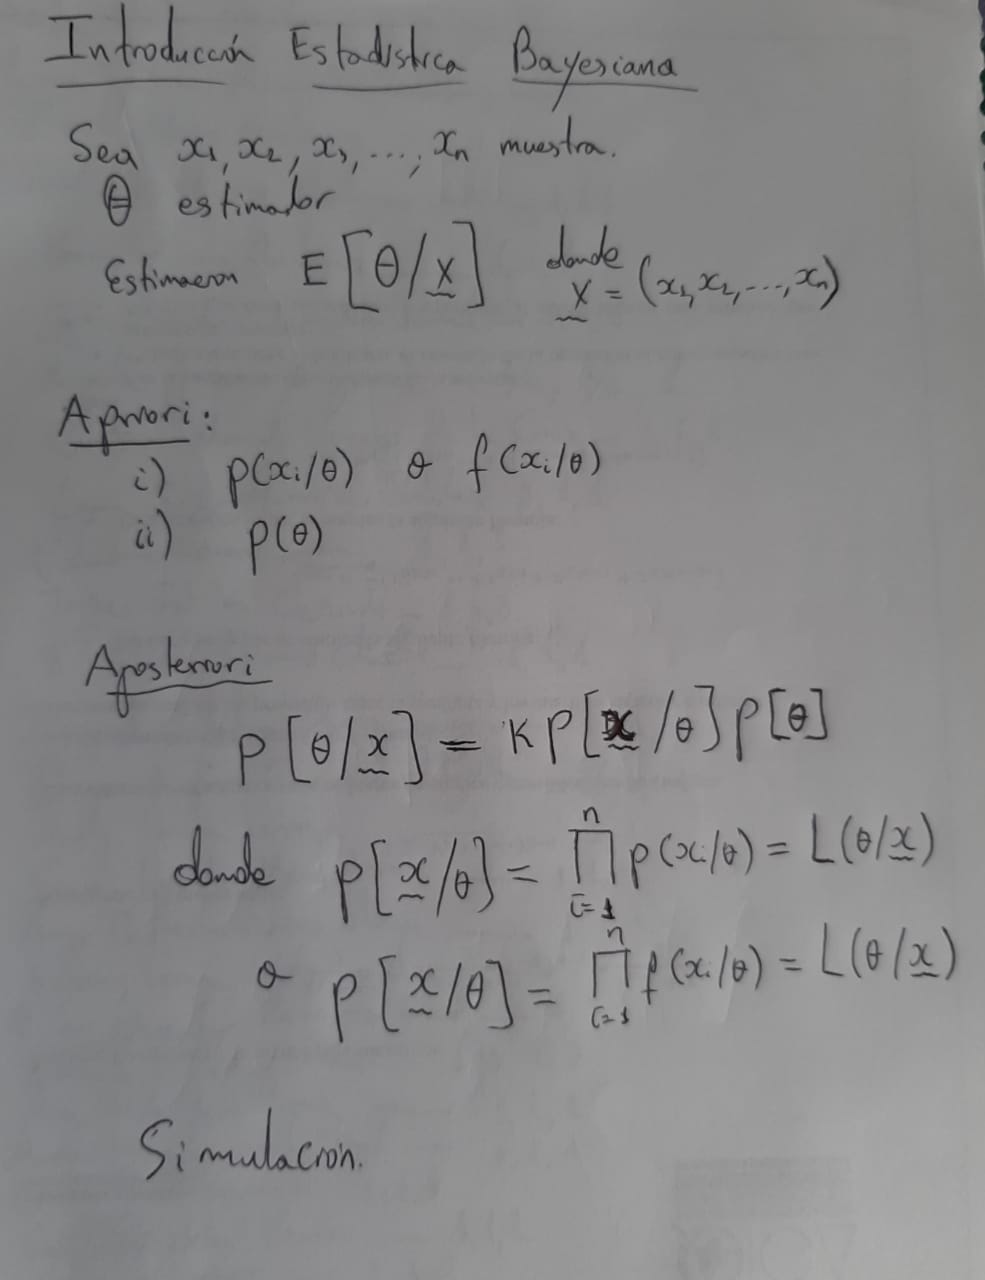 Introducción Estadistica Bayesiana
Sea x₁, x₂, x₃, ..., xₙ muestra.
θ estimador
Estimacion E[θ/x] donde
x = (x₁, x₂, ..., xₙ)
Apriori:
i) p(xᵢ/θ) o f(xᵢ/θ)
ii) p(θ)
Aposteriori
P[θ/x] = K P[x/θ] P[θ]
donde p[x/θ] = ∏ⁿᵢ₌₁ p(xᵢ/θ) = L(θ/x)
o p[x/θ] = ∏ⁿᵢ₌₁ f(xᵢ/θ) = L(θ/x)
Simulacion.